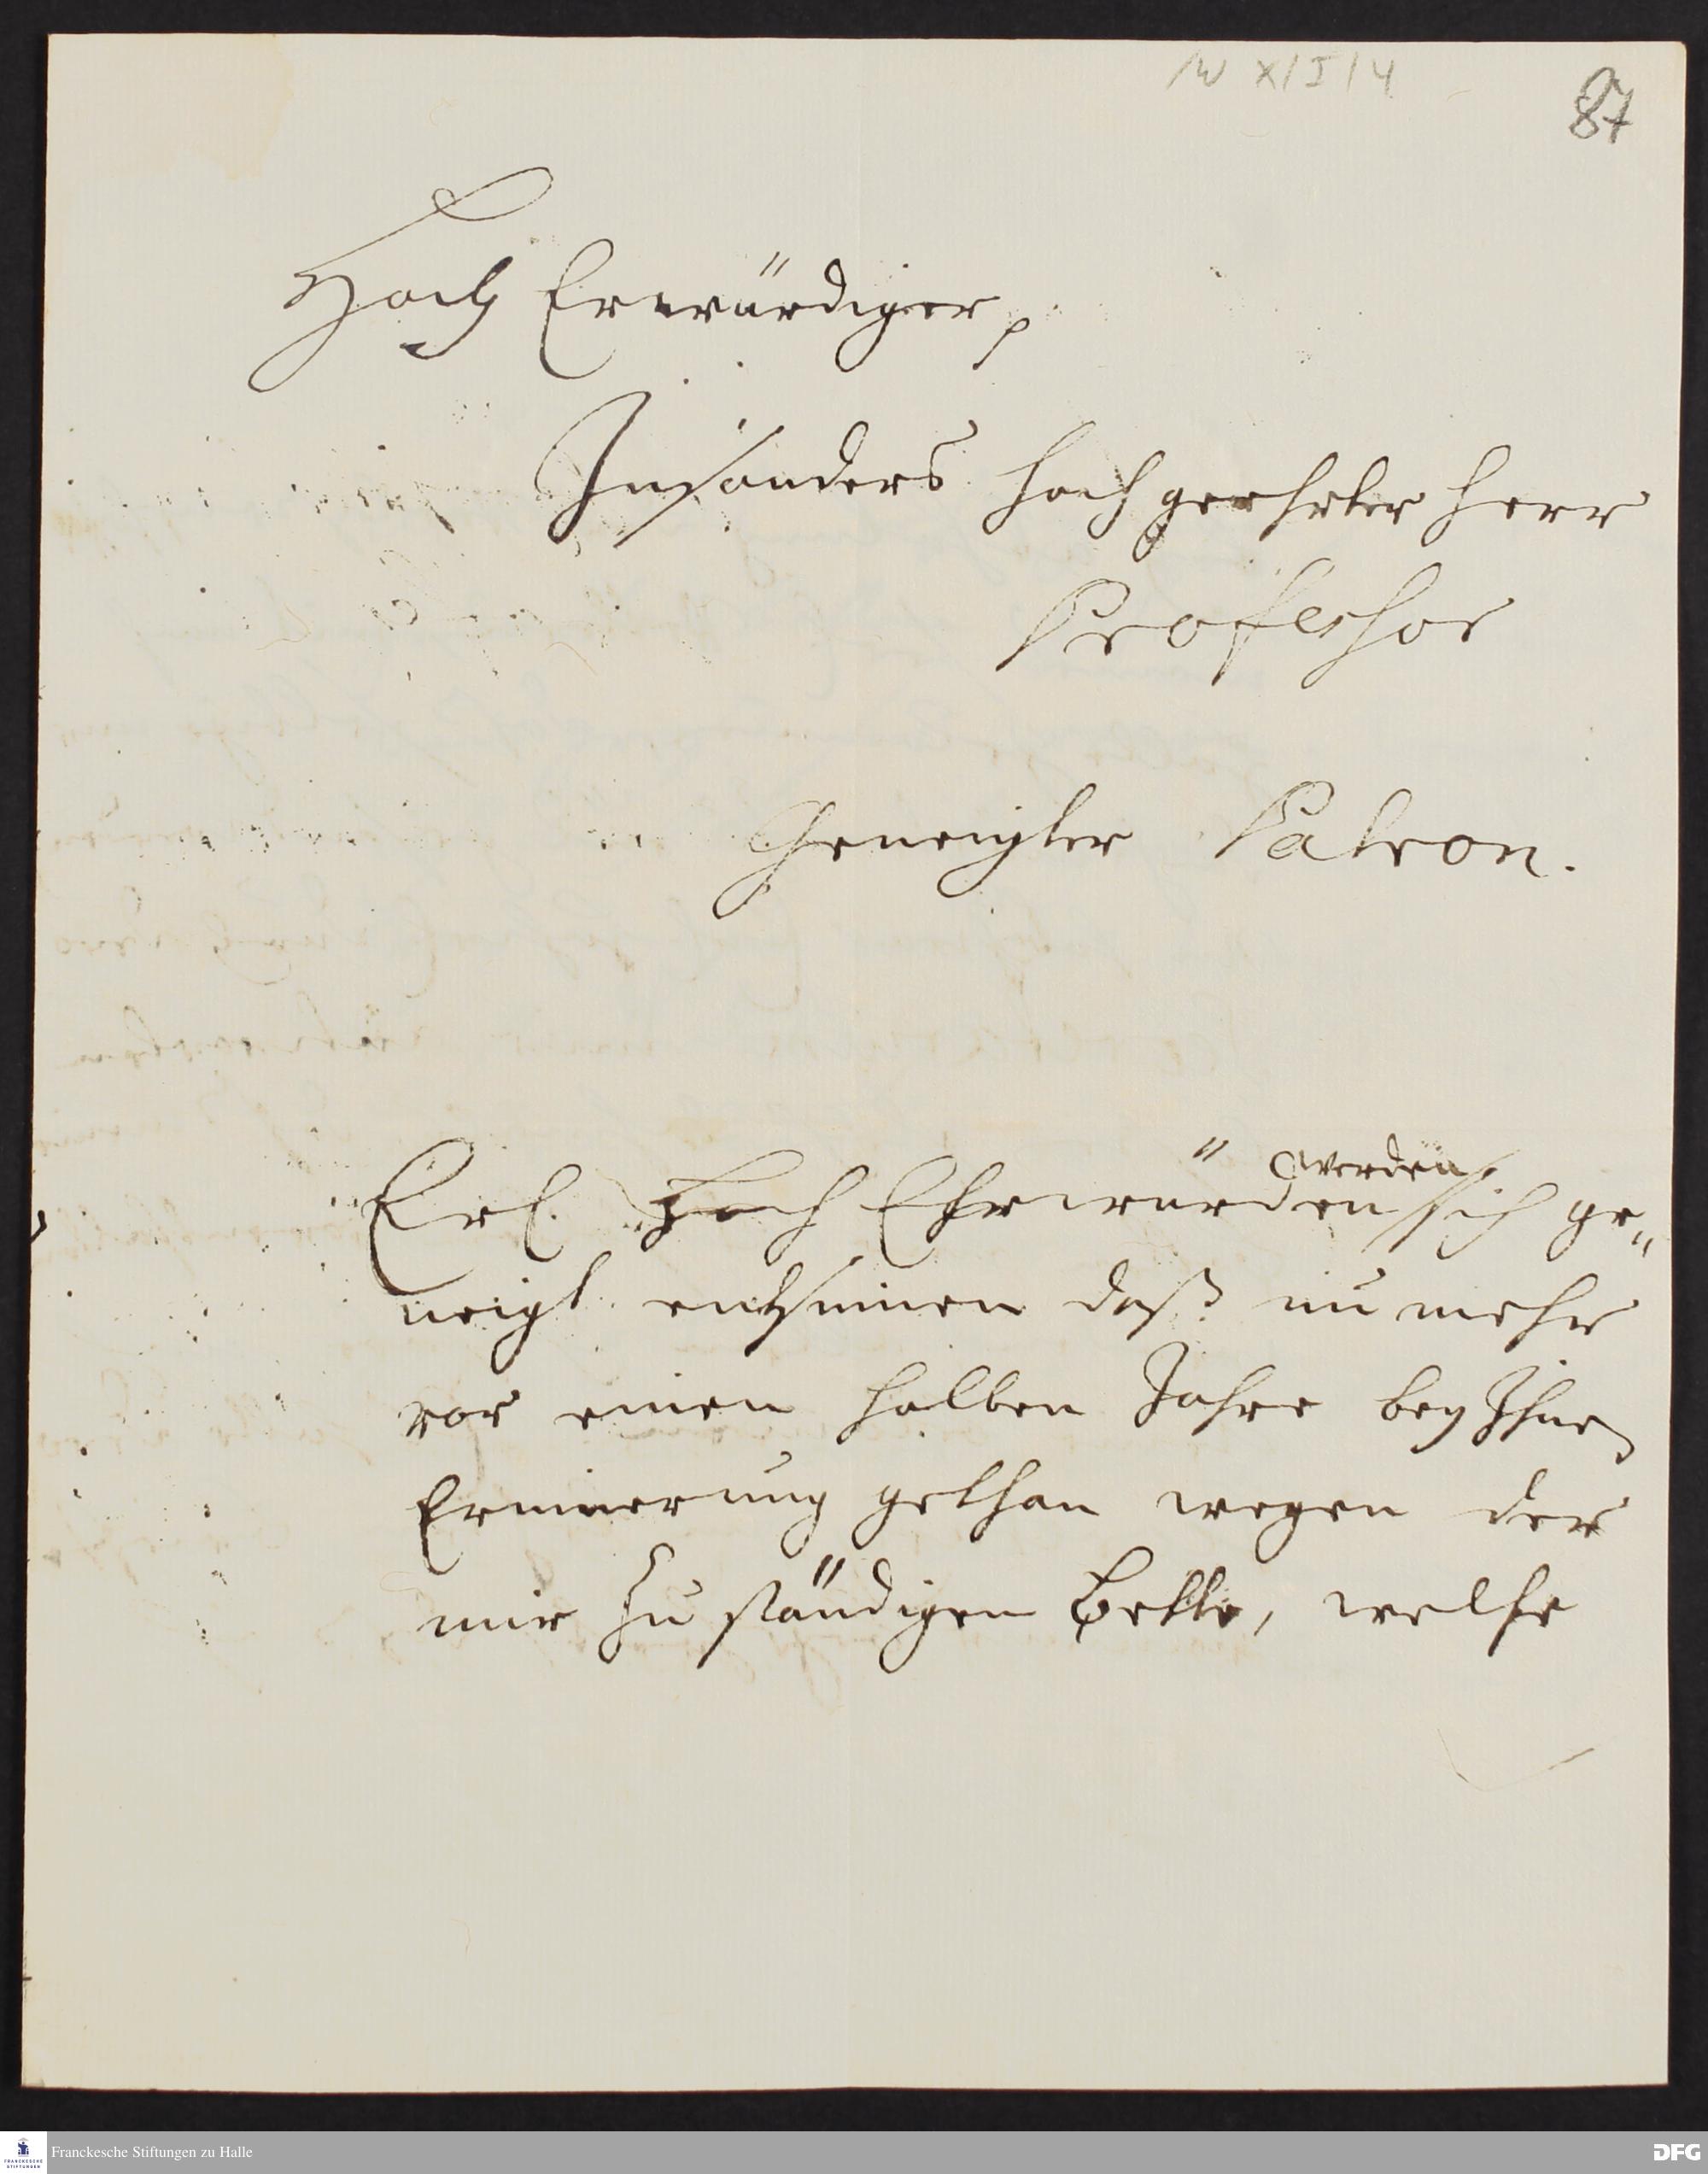 W X/I/4
87
Hoch Erwürdiger p.
Insonders hoch geehrter Herr
Professor
Geneigter Patron.
werden
Ew. Hoch Ehrwürden sich ge"
neigt entsinnen daß nu mehr
vor einen halben Jahre bey Ihnen
Erinnerung gethan wegen der
mir zu ständigen Bette, welche
Franckesche Stiftungen zu Halle
DFG